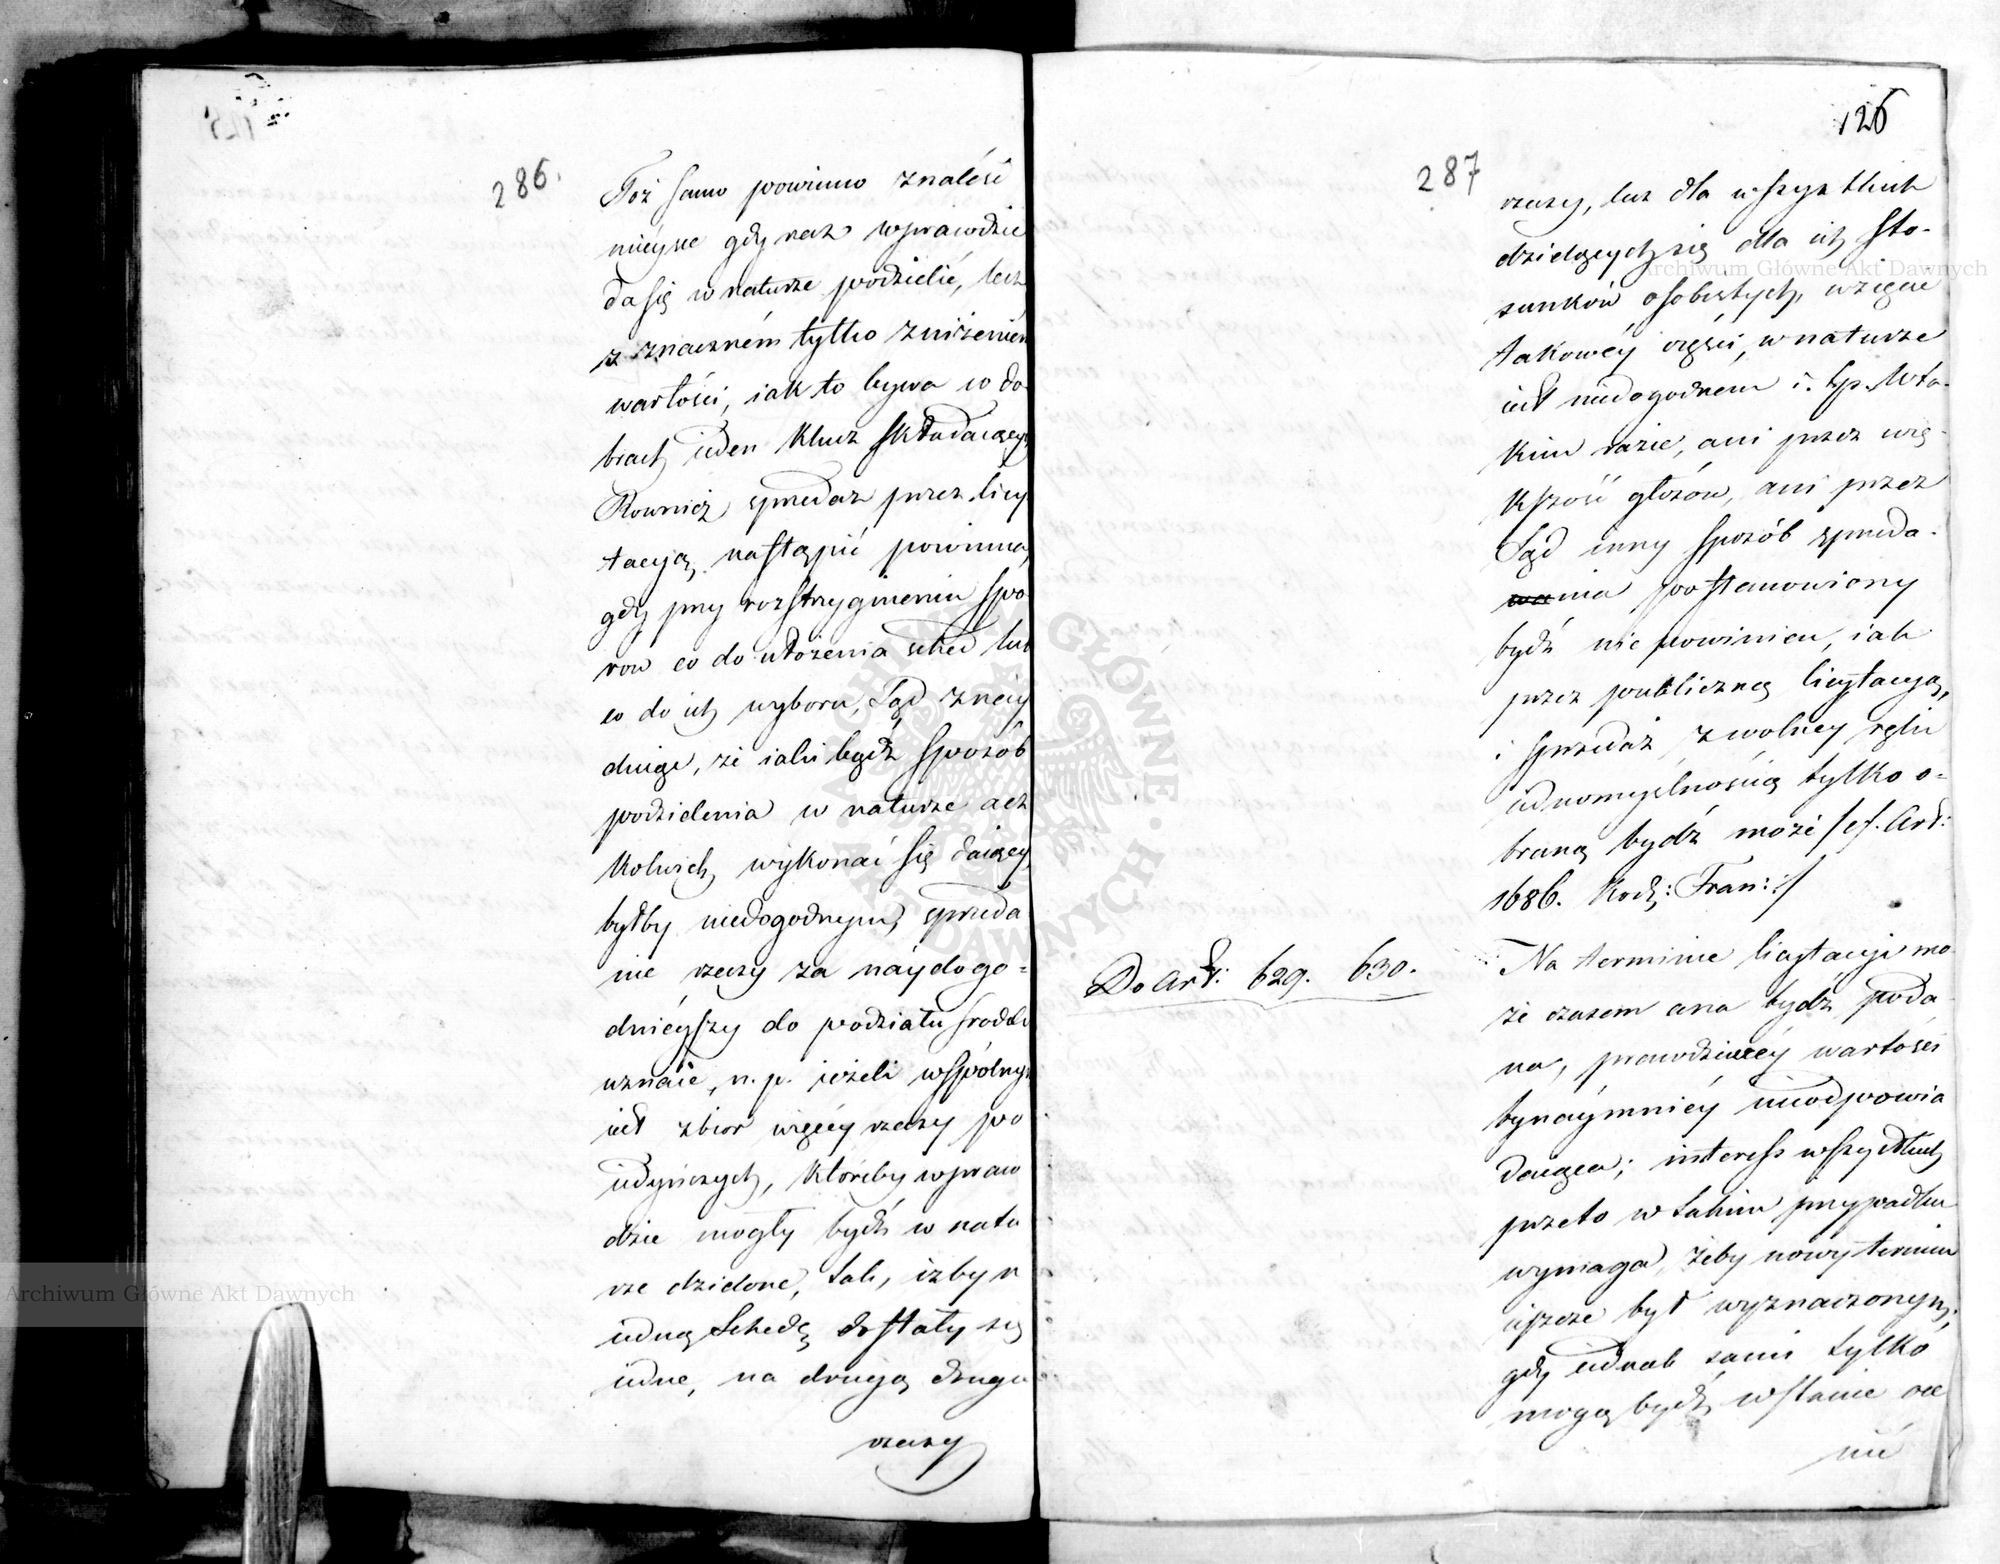 286.
Toż samo powinno znaleść
mieysce gdy rzecz wprawdzie
da się w naturze podzielić, lecz
z znaczném tylko zniżeniem
wartości, iak to bywa w do
brach ieden klucz składaiący
Rownież sprzedaż przez licy
tacyą, nastąpić powinna,
gdy przy rozstrzygnieniu spo
row co do ułożenia sched lub
co do ich wyboru, Sąd znay
duie, że iaki bądź sposób
podzielenia w naturze acz
kolwiek wykonać się daiący,
byłby niedogodnym, sprzeda
nie rzeczy za náydogo=
dnieyszy do podziału środek
uznaie, n. p. ieżeli wspólnym
iest zbior więcéy rzeczy po
iedyńczych, któreby wpraw
dzie mogły bydź w natu
rze dzielone, tak, iżby n
iedną Schedę dostały się
iedne, na drugą drugie
rzeczy
126
287
rzeczy, lecz dla wszystkich
dzielących się dla ich sto-
sunków osobistych, wzięcie
takowéy części, w naturze
iest niedogodném i. t. p. W ta-
kim razie, ani przez wię-
kszość głosów, ani przez
Sąd inny sposób sprzeda-
wania postanowiony
bydź nie powinien, iak
przez publiczną licytacyą,
i sprzedaż z wolney ręki
iednomyślnością tylko o=
braną bydź może /cf. Art:
1686. Kod: Fran:/
Do Art: 629. 630.
Na terminie licytacyi mo-
że czasem cena bydź poda
na, prawdziwéy wartości
bynaymniéy nieodpowia
daiąca; interess wszystkich
przeto w takim przypadku
wymaga, żeby nowy termin
ieszcze był wyznaczonym,
gdy iednak sami tylko
mogą bydź w stanie oce
nić
Archiwum Główne Akt Dawnych
Archiwum Główne Akt Dawnych
ARCHIWUM GŁÓWNE AKT DAWNYCH